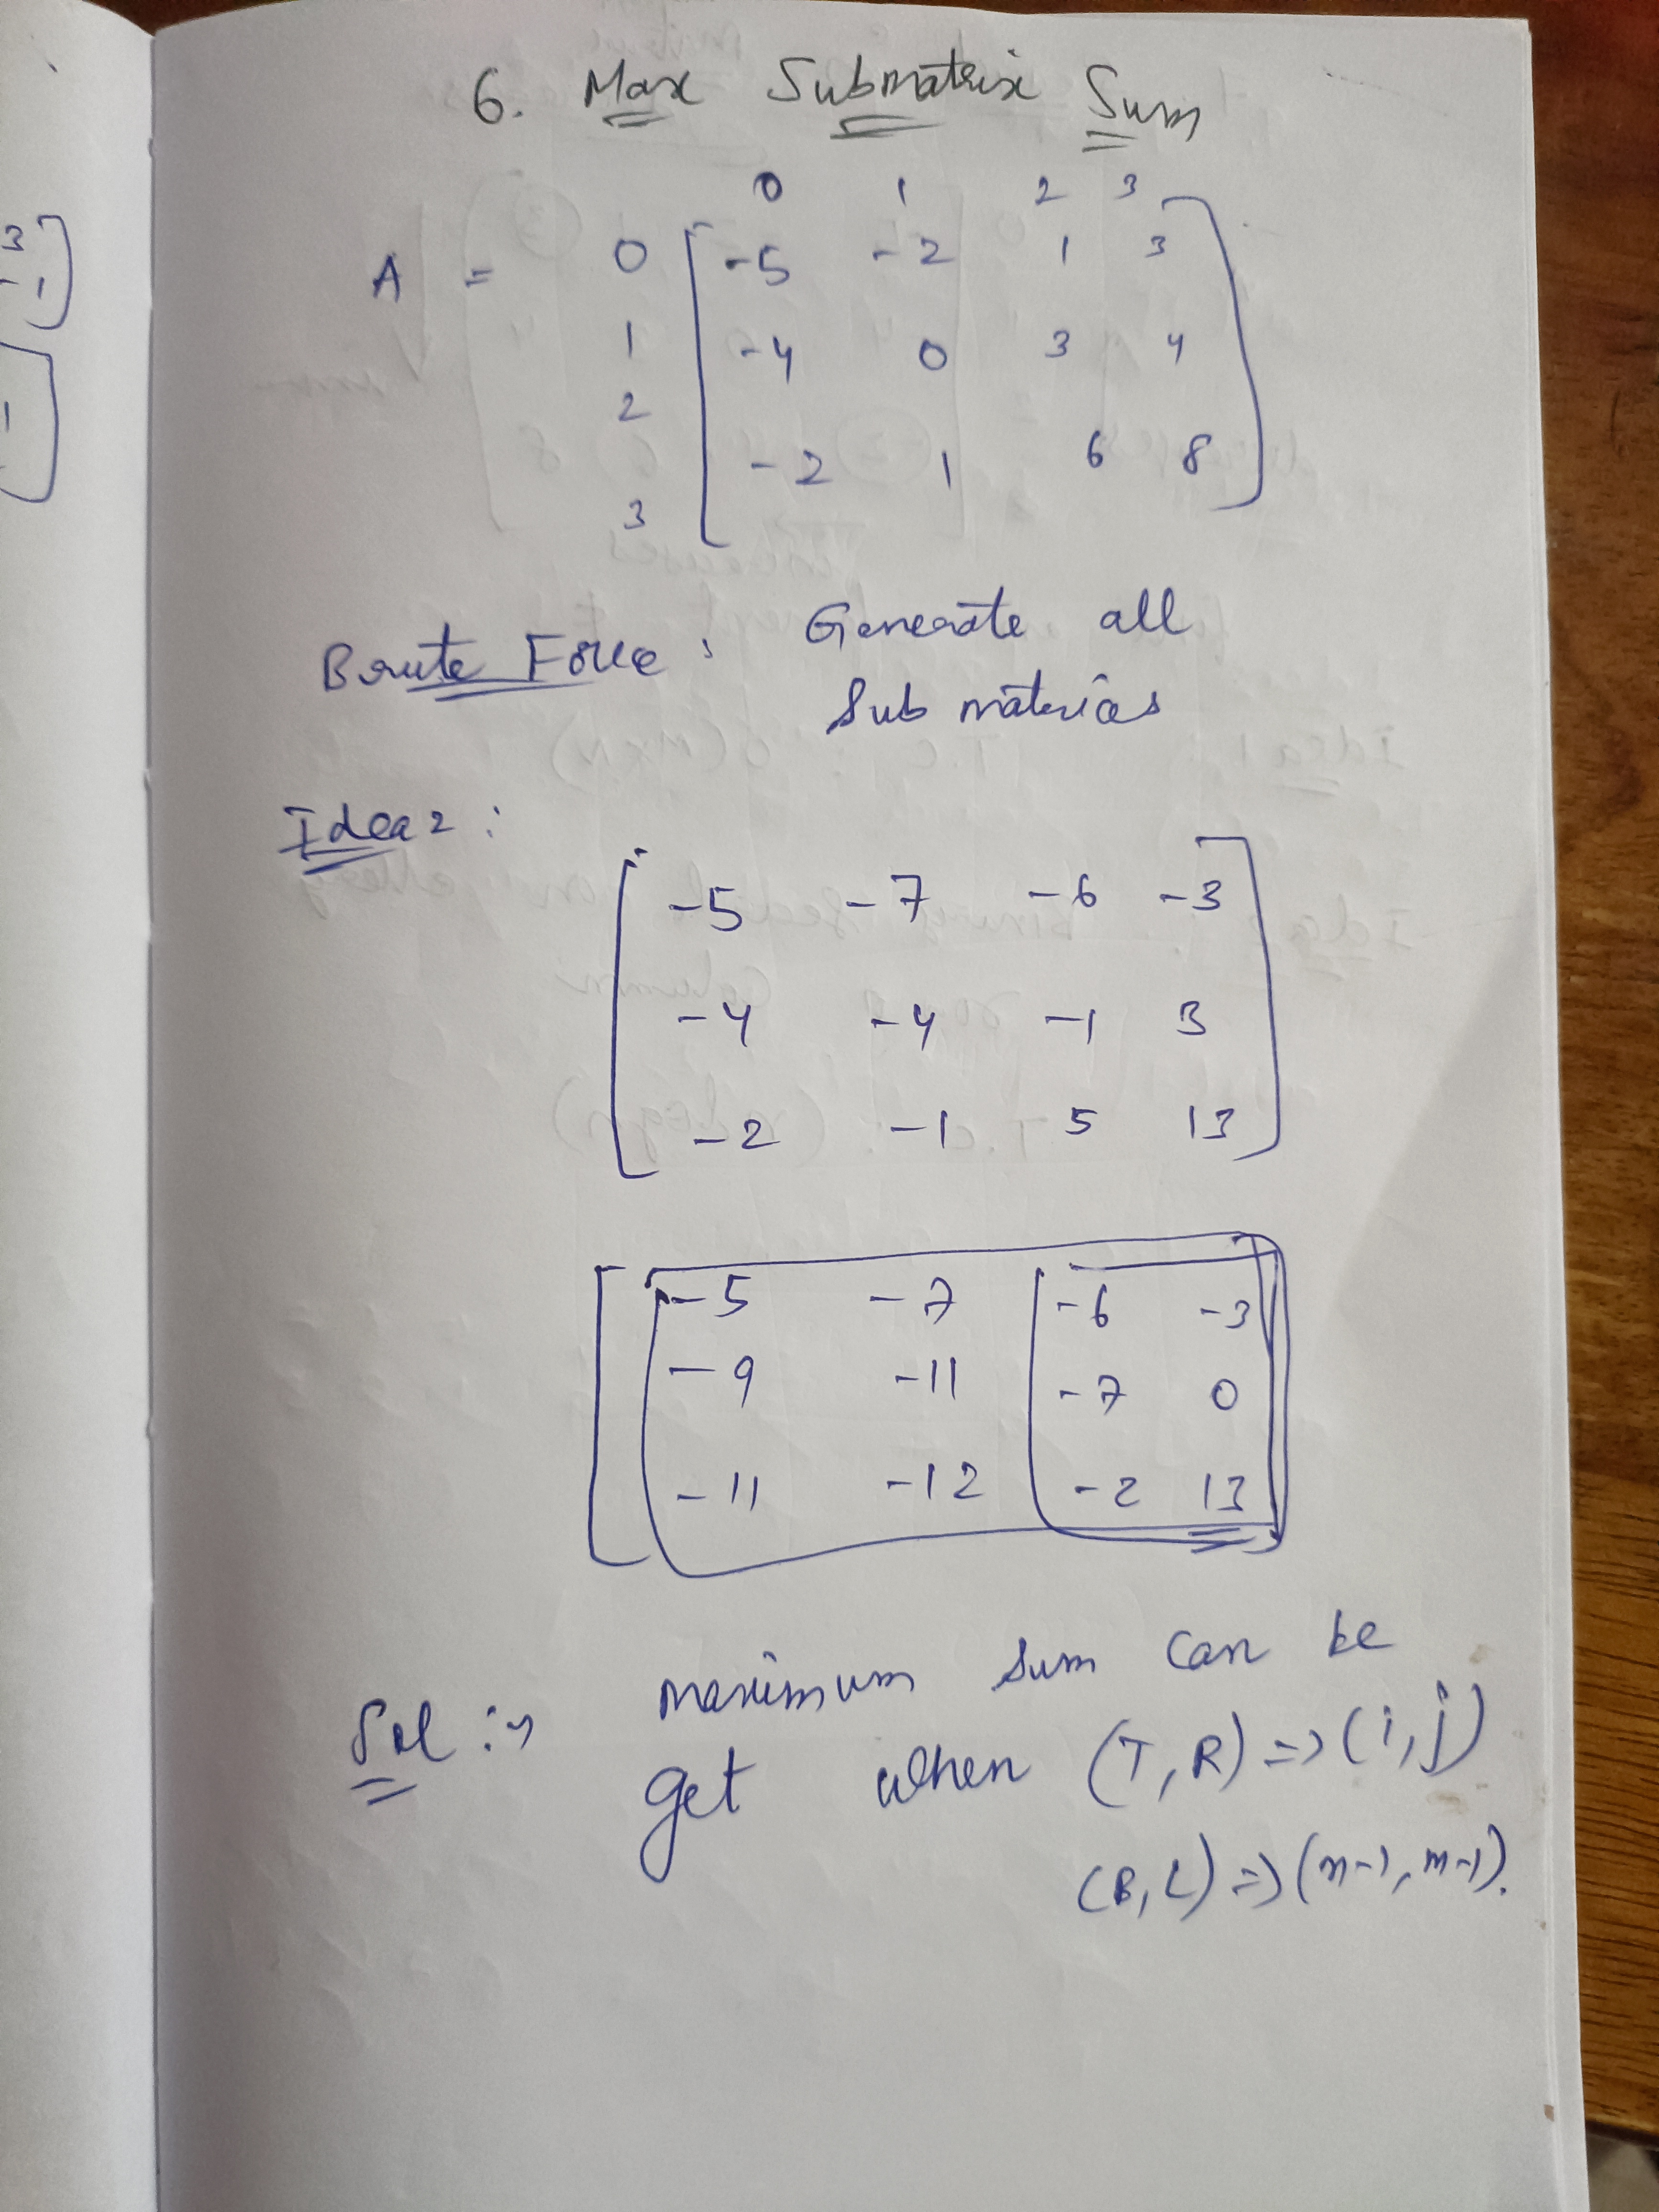 6. Max Submatrix Sum
0 1 2 3
A = 0 -5 -2 1 3
1 -4 0 3 4
2
-2 1 6 8
3
Brute Force: Generate all
Sub matrices
Idea 2:
-5 -7 -6 -3
-4 -4 -1 3
-2 -1 5 13
-5 -7 -6 -3
-9 -11 -7 0
-11 -12 -2 13
Sol :→ maximum sum can be
get when (T, R) => (i, j)
(B, L) => (n-1, m-1).
3
-1